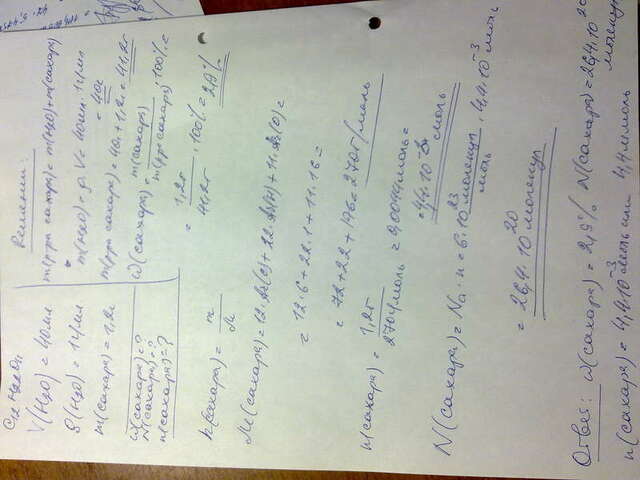 Решение:
C12H22O11
V(H2O) = 40мл
ρ(H2O) = 1г/мл
m(сахара) = 1,2г
ω(сахара) = ?
N(сахара) = ?
n(сахара) = ?
m(р-ра сахара) = m(H2O) + m(сахара)
m(H2O) = ρ·V = 40мл · 1г/мл
= 40г
m(р-ра сахара) = 40г + 1,2г = 41,2г
ω(сахара) = m(сахара) / m(р-ра сахара) · 100% =
= 1,2г / 41,2г · 100% = 2,9%
n(сахара) = m / M
M(сахара) = 12·Ar(C) + 22·Ar(H) + 11·Ar(O) =
= 12·6 + 22·1 + 11·16 =
= 72 + 22 + 176 = 270г/моль
n(сахара) = 1,2г / 270г/моль = 0,0044моль =
= 4,4·10^-3 моль
N(сахара) = Na · n = 6·10^23 молекул/моль · 4,4·10^-3 моль
= 26,4·10^20 молекул
Ответ: ω(сахара) = 2,9% N(сахара) = 26,4·10^20 молекул
n(сахара) = 4,4·10^-3 моль или 4,4 ммоль